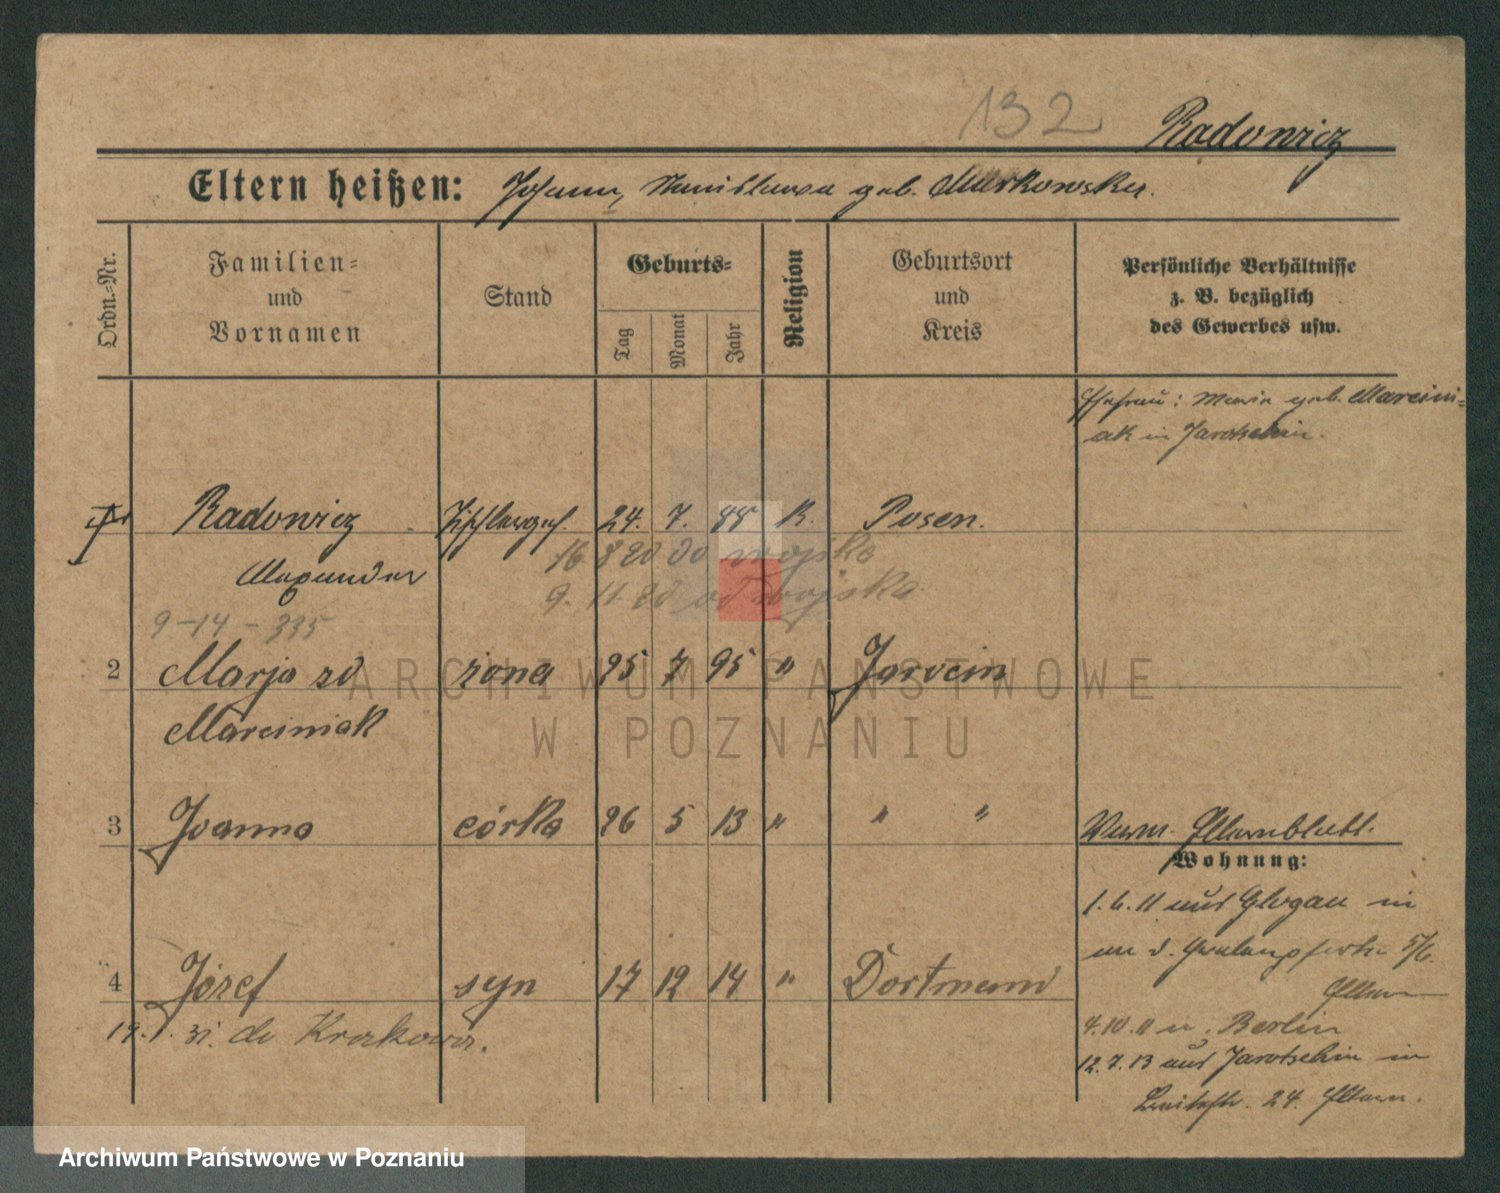 132
Radowicz
Eltern heißen: Johann, Stanislawa geb. Markowska.
Ordn.-Nr.
Familien-
und
Vornamen
Stand
Geburts-
Tag
Monat
Jahr
Religion
Geburtsort
und
Kreis
Persönliche Verhältnisse
z. B. bezüglich
des Gewerbes usw.
Ehefrau: Maria geb. Marcini-
ak in Jarotschin.
Radowicz
Tischlerges. 24. 7. 88 K. Posen.
Alexander
16 8 20 do wojska
9. 11 20 od wojska
9-14-335
2 Marja zd żona 25 7 95 " Jarocin
Marciniak
3 Joanna córka 26 5 13 " " "
Verm. Elternblatt.
Wohnung:
1.6.11 aus Glogau in
4 Józef syn 17 12 14 " Dortmund
Eltern
19.1.31. do Krakowa.
4.10.11 n. Berlin
12.7.13 aus Jarotschin in
24. Eltern.
ARCHIWUM PAŃSTWOWE
W POZNANIU
Archiwum Państwowe w Poznaniu